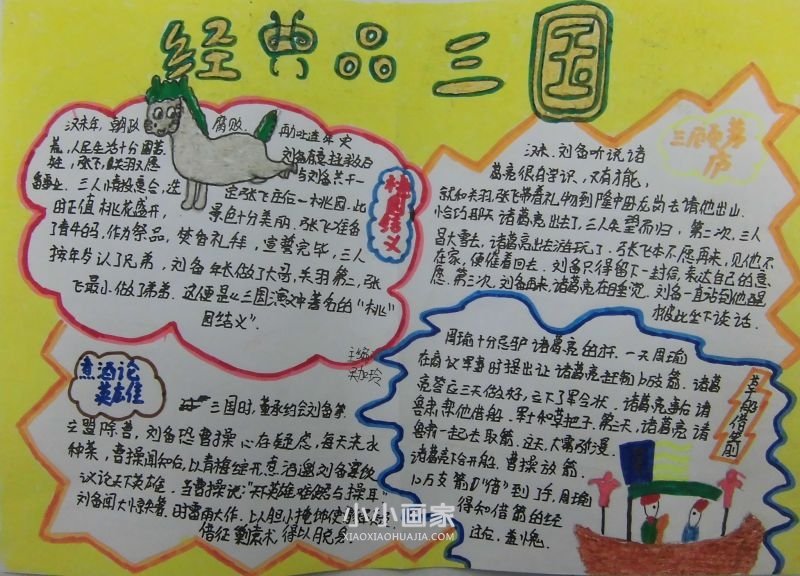 经典品三国
汉末年,朝政腐败,再加上连年灾
荒,人民生活十分困苦。刘备有意拯救百
姓,张飞、关羽又愿与刘备共干一
番事业。三人情投意合,选定张飞庄后一桃园。此
时正值桃花盛开,景色十分美丽,张飞准备
了青牛白马,作为祭品,焚香礼拜,宣誓完毕,三人
按年岁认了兄弟,刘备年长做了大哥,关羽第二,张
飞最小做了弟弟。这便是《三国演义》中著名的“桃
园结义”。
桃园结义
三顾茅
庐
汉末,刘备听说诸
葛亮很有学识,又有才能,
就和关羽、张飞带着礼物到隆中卧龙岗去请他出山
恰巧那天诸葛亮出去了,三人失望而归。第二次,三人
冒大雪去,诸葛亮出去游玩了。张飞本不愿再来,见他不
在家,便催着回去。刘备只得留下一封信,表达自己的意
愿。第三次,刘备再来,诸葛亮在睡觉。刘备一直站到他醒
彼此坐下谈话。
煮酒论
英雄
三国时,董承约会刘备
立盟除曹。刘备恐曹操心存疑虑,每天浇水
种菜,曹操闻知后,以青梅绽开,煮酒邀刘备宴饮
议论天下英雄。当曹操说:“天下英雄唯使君与操耳”
刘备闻大惊失箸。时雷雨大作,以胆小掩饰
借征剿袁术,得以脱身。
周瑜十分忌妒诸葛亮的才。一天周瑜
在商议军事时提出让诸葛亮赶制10万支箭。诸葛
亮答应三天做好,立下了军令状。诸葛亮事后请
鲁肃帮他借船、军士和草把子。第三天,诸葛亮请
鲁肃一起去取箭。这天,大雾弥漫,
诸葛亮下令开船。曹操放箭,
10万支箭“借”到了手。周瑜
得知借箭的经
过后,
草船借箭
小小画家
XIAOXIAOHUAJIA.COM